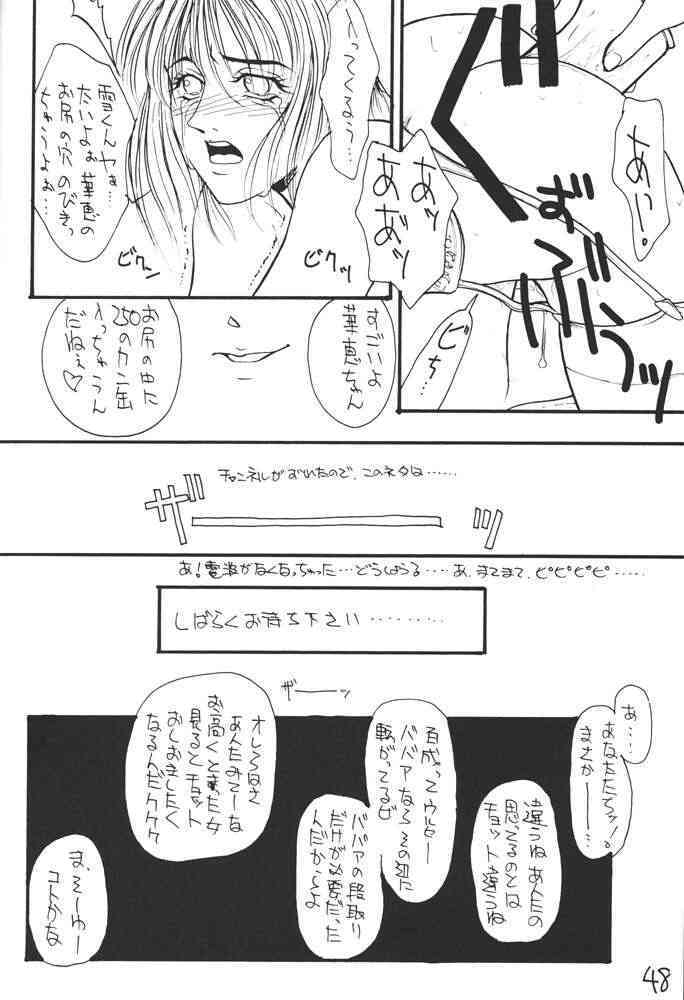 あっ。
ずぶっ
あッ
あぁッ
ビち
入ってくるぅ…
雪くんヤぁ…
たいよぉ 華恵の
お尻の穴 のびきっ
ちゃうよぉ…
ビクッ
ビクン
すごいよ
華恵ちゃん
お尻の中に
250のカン缶
入っちゃうん
だねぇ♡
チャンネルがずれたので、このネタは……
ザ ッ
あ!電波がなくなっちゃった…どうしよう……あ、まてまて、ピピピピ……
しばらくお待ち下さい………
ザーーッ
あ…
あなたたちッ!
まさか———…
違うね あんたの
思ってるのとは
チョット違うね
ババアならその辺に
転がってるぜ
ババアの段取り
だけが必要だった
んだかんよ
オレらはさ
あんたみてーな
お高くとまった女
見ると チョット
おしおきしたく
なるんだケケケ
ま、そーゆー
コトかな
48